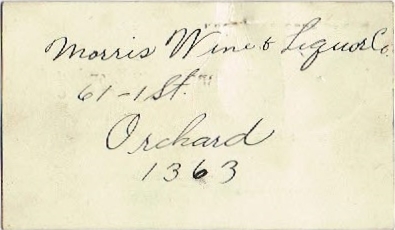 Morris Wine & Liquor Co.
61-1 St.
Orchard
1363